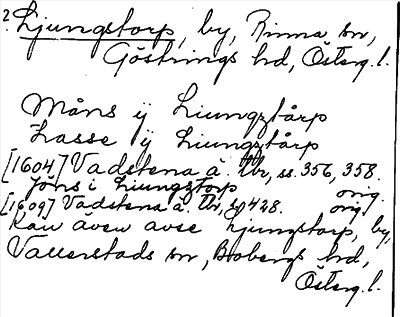 2. Ljungstorp, by, Rinna sn,
Göstrings hd, Österg. l.
Måns ij Liungztårp
Lasse ij Liungztårp
[1604] Vadstena ä. tbr, ss. 356, 358. orig.
Jöns i Liungstorp
[1609] Vadstena ä. tbr, s. 428. orig.
Kan även avse Ljungstorp, by,
Vallerstads sn, Bobergs hd,
Österg. l.